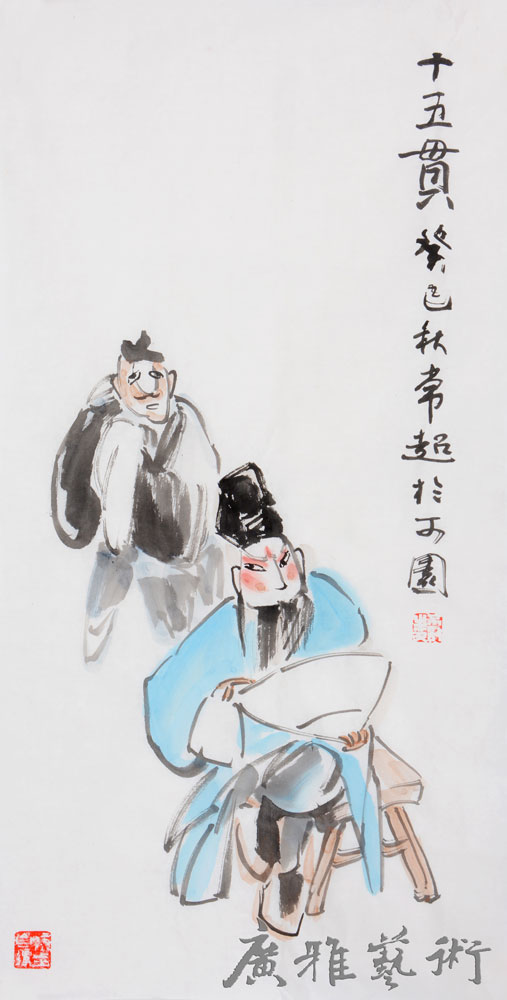 十五貫癸巳秋常超於文園
廣雅藝術